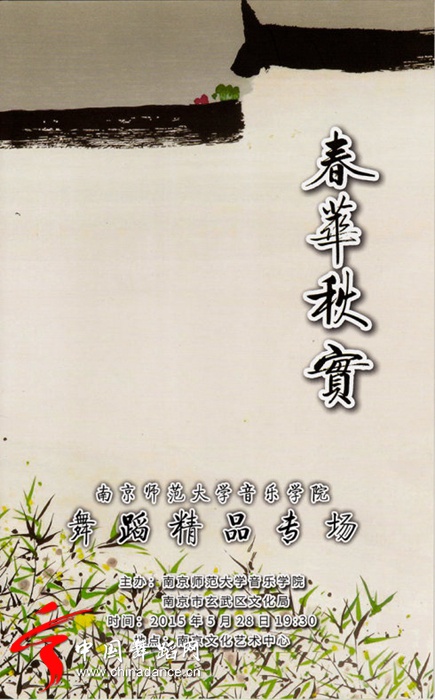 春華秋實
南京师范大学音乐学院
舞蹈精品专场
主办：南京师范大学音乐学院
南京市玄武区文化局
时间：2015年5月28日19:30
地点：南京文化艺术中心
中国舞蹈网
www.chinadance.cn